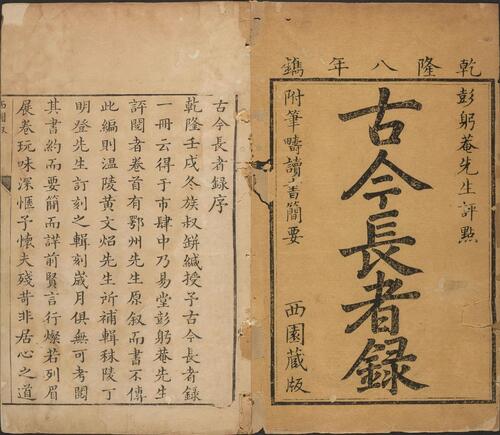 乾隆八年鐫
彭躬菴先生評點
古今長者録
附筆疇讀書簡要
西園藏版
古今長者録序
乾隆壬戌冬族叔緘授予古今長者録
一冊云得于市肆中乃易堂彭躬菴先生
評閱者卷首有鄂州先生原叙而書不傳
此編則温陵黃文炤先生所補輯秣陵丁
明登先生訂刻之輯刻歲月俱無可考閱
其書約而要簡而詳前賢言行燦若列眉
展卷玩味深愜予懷夫殘苛非居心之道